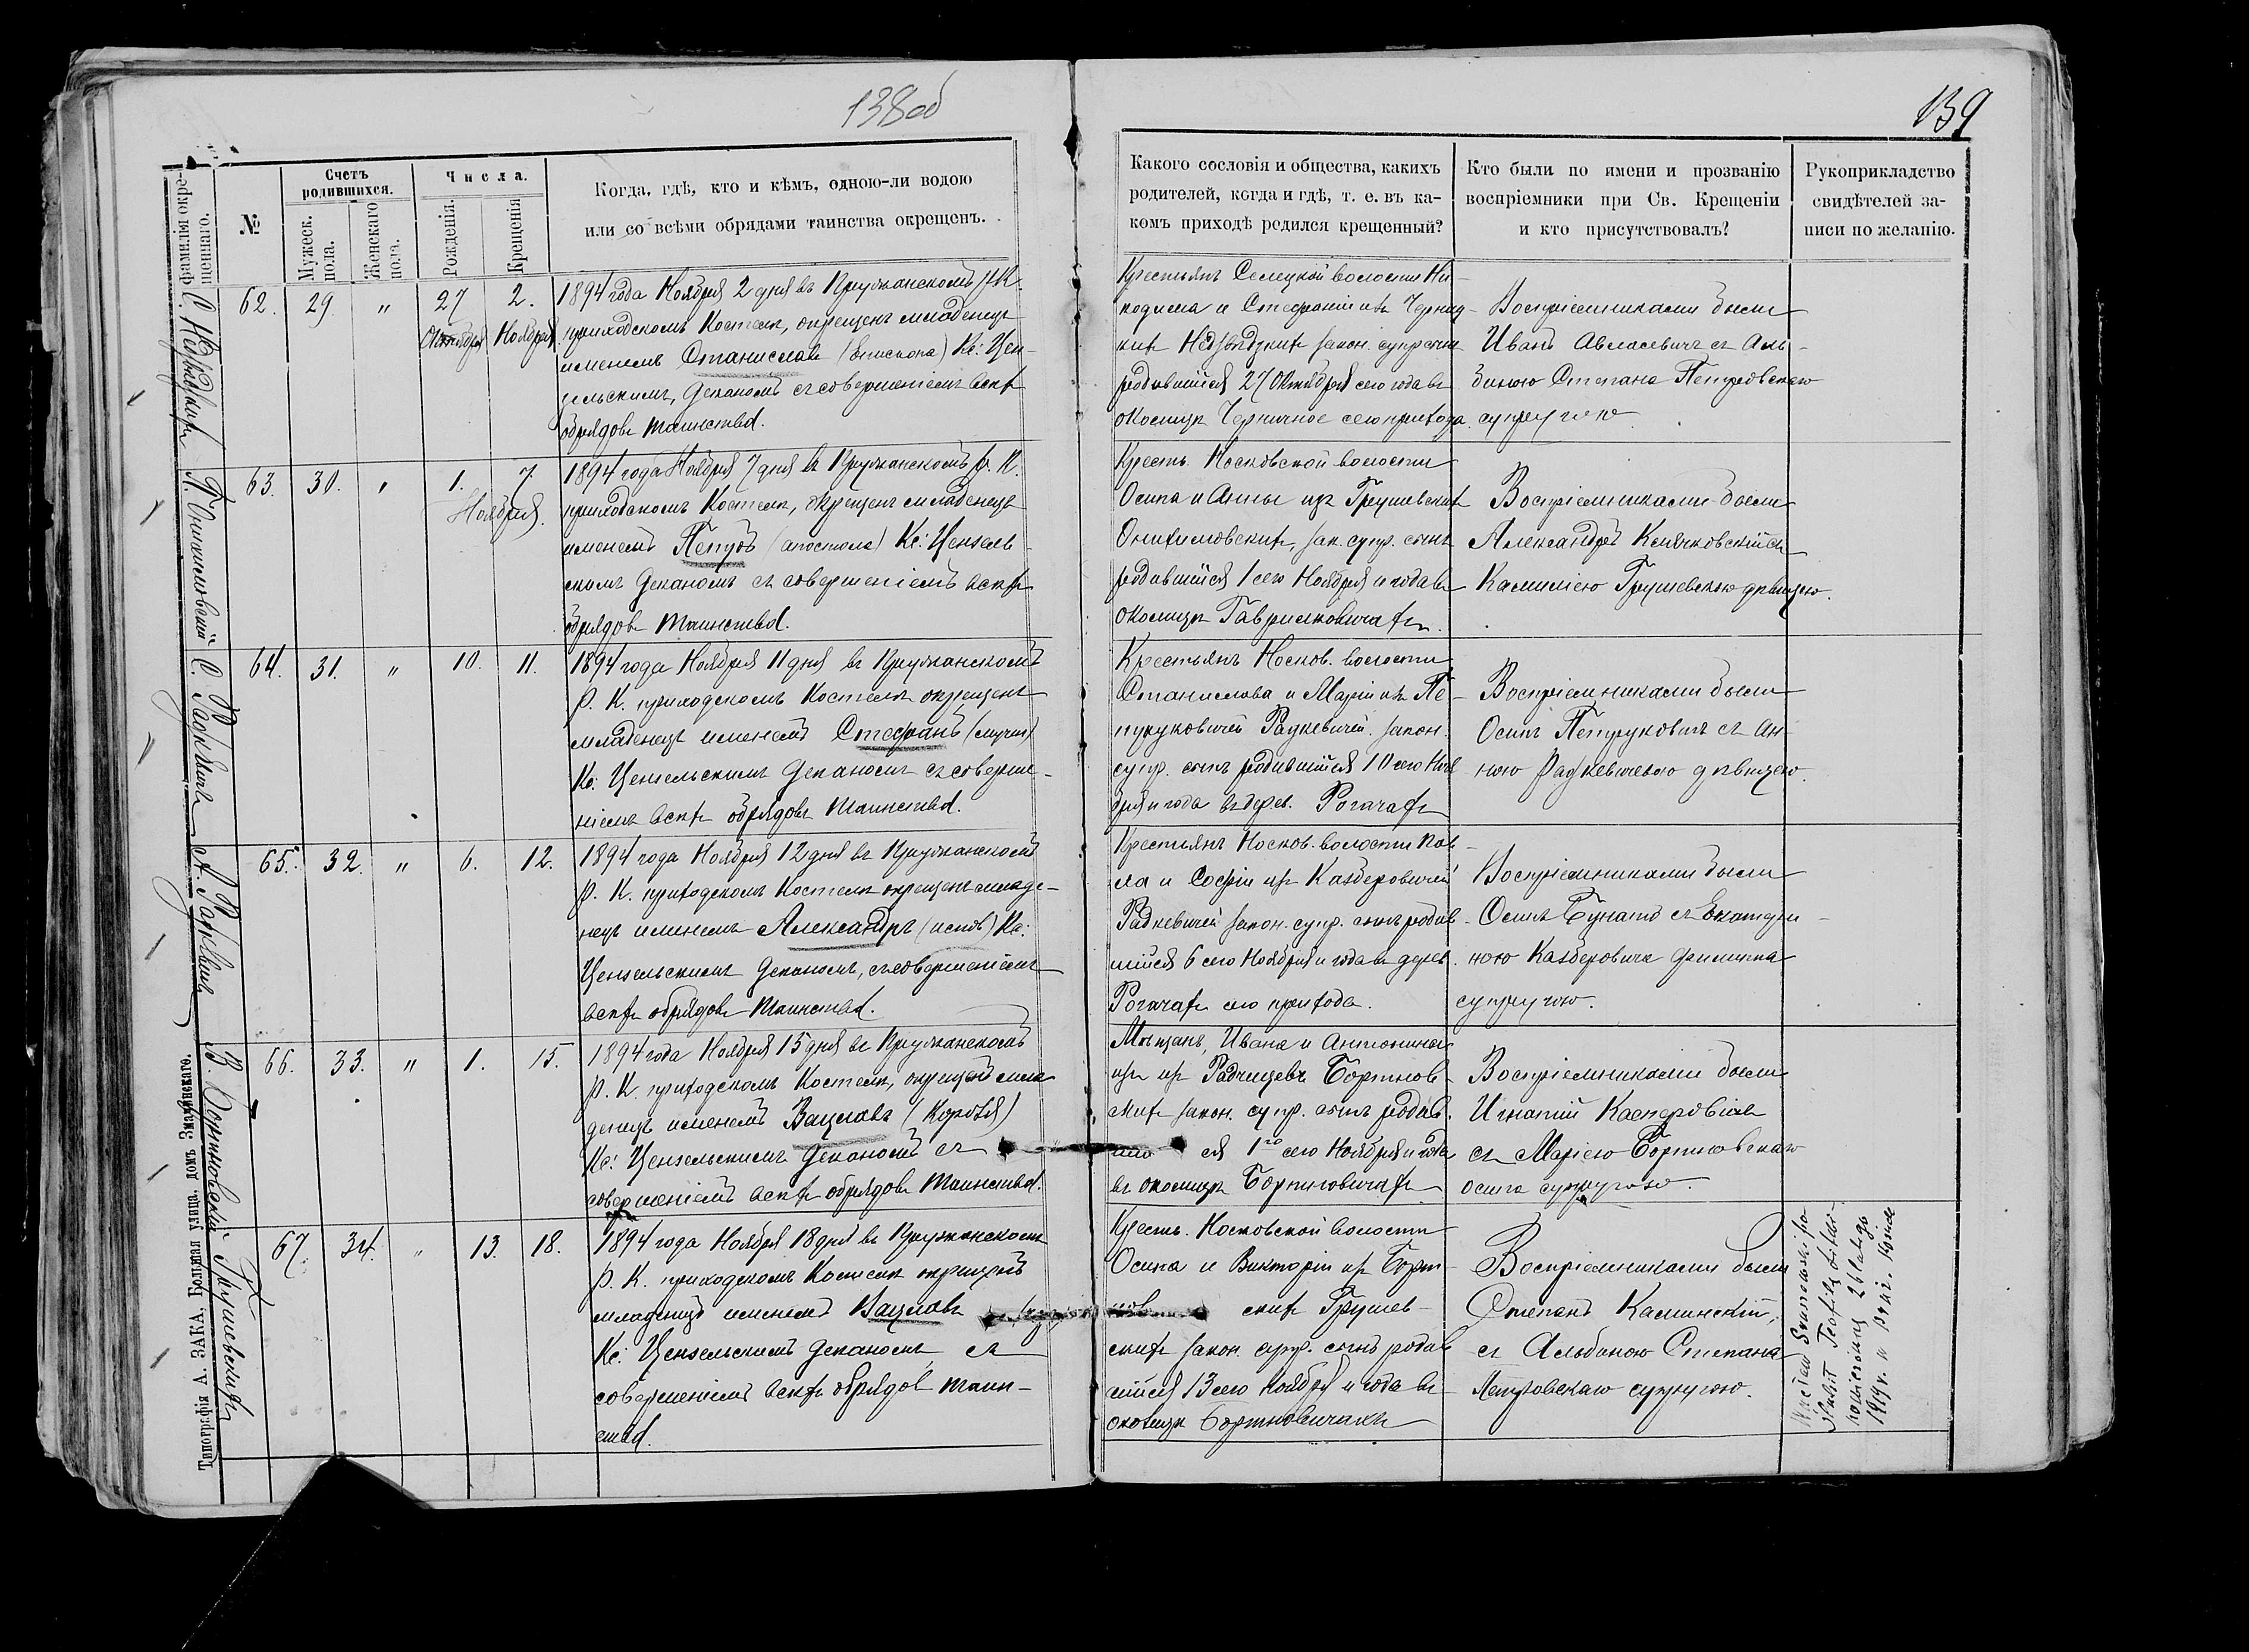 138об
139
Фамилія окре-
щеннаго.
№
Счетъ
родившихся.
Мужеск.
пола.
Женскаго
пола.
Числа.
Рожденія.
Крещенія
Когда, гдѣ, кто и кѣмъ, одною-ли водою
или со всѣми обрядами таинства окрещенъ.
Какого сословія и общества, какихъ
родителей, когда и гдѣ, т. е. въ ка-
комъ приходѣ родился крещенный?
Кто были по имени и прозванію
воспріемники при Св. Крещеніи
и кто присутствовалъ?
Рукоприкладство
свидѣтелей за-
писи по желанію.
62. 29 " 27 2.
Октября Ноября
1894 года Ноября 2 дня въ Пружанскомъ Р. К.
приходскомъ Костелѣ, окрещенъ младенецъ
именемъ Станиславъ (Епископа) Кс: Цен-
зельскимъ, Деканомъ съ совершеніемъ всѣхъ
обрядовъ таинства.
Крестьянъ Селецкой волости Ни-
кодима и Стефаніи изъ
законн. супруговъ
родившійся 27 Октября сего года въ
околицѣ Черничное сего прихода.
Воспріемниками были
Иванъ Авласевичъ съ Аль-
биною Степана Петровскаго
супругою
63. 30. " 1. 7.
Ноября.
1894 года Ноября 7 дня въ Пружанскомъ р. К.
приходскомъ Костелѣ, окрещенъ младенецъ
именемъ Петръ (апостола) Кс: Цензель-
скимъ Деканомъ съ совершеніемъ всѣхъ
обрядовъ таинства.
Кресть. Носковской волости
Осипа и Анны изъ Грушевскихъ
Онихимовскихъ, зак. супр. сынъ
родившійся 1 сего Ноября и года въ
околицѣ Гаврилковичахъ.
Воспріемниками были
Александръ съ
Камиліею Грушевскою дѣвицею.
64. 31. " 10. 11.
1894 года Ноября 11 дня въ Пружанскомъ
р. К. приходскомъ Костелѣ окрещенъ
младенецъ именемъ Стефанъ (мучен)
Кс: Цензельскимъ Деканомъ съ соверше-
ніемъ всѣхъ обрядовъ таинства.
Крестьянъ Носков. волости
Станислава и Маріи изъ Пе-
труковичей Радкевичей закон.
супр. сынъ родившійся 10 сего Ноя
бря и года въ дерев. Рогачахъ
Воспріемниками были
Осипъ Петруковичъ съ Ан-
ною Радкевичевою дѣвицею.
65. 32. " 6. 12.
1894 года Ноября 12 дня въ Пружанскомъ
р. К. приходскомъ Костелѣ окрещенъ младе-
нецъ именемъ Александръ (испов) Кс:
Цензельскимъ Деканомъ, съ совершеніемъ
всѣхъ обрядовъ таинства.
Крестьянъ Носков. волости Пав-
ла и Софіи изъ Казберовичей
Радкевичей закон. супр. сынъ родив-
шійся 6 сего Ноября и года въ дерев.
Рогачахъ сего прихода.
Воспріемниками были
Осипъ съ Екатери-
ною Казберовича Филиппа
супругою.
66. 33. " 1. 15.
1894 года Ноября 15 дня въ Пружанскомъ
р. К. приходскомъ Костелѣ, окрещенъ мла
денецъ именемъ Вацлавъ (Короля)
Кс: Цензельскимъ Деканомъ съ
совершеніемъ всѣхъ обрядовъ таинства.
Мѣщанъ, Ивана и Антонины
изъ Бортнов-
скихъ закон. супр. сынъ родив-
ся 1го сего Ноября и года
въ околицѣ Бортновичахъ
Воспріемниками были
Игнатій
съ Маріею Бортновскаго
Осипа супругою.
67. 34. " 13. 18.
1894 года Ноября 18 дня въ Пружанскомъ
р. К. приходскомъ Костелѣ окрещенъ
младенецъ именемъ Вацлавъ
Кс: Цензельскимъ Деканомъ, съ
совершеніемъ всѣхъ обрядовъ таин-
ства.
Кресть. Носковской волости
Осипа и Викторіи изъ Борт-
нов скихъ Грушев-
скихъ закон. супр. сынъ родив
шійся 13 сего Ноября и года въ
околицѣ Бортновичахъ
Воспріемниками были
Степанъ Каминскій,
съ Альбиною Степана
Петровскаго супругою.
26 lutego
1919 r. w
С. Радкевичъ
А. Радкевичъ
В. Бортновскій
Грушевскій
Типографія А. ЗАКА, Большая улица, домъ Знаминскаго.